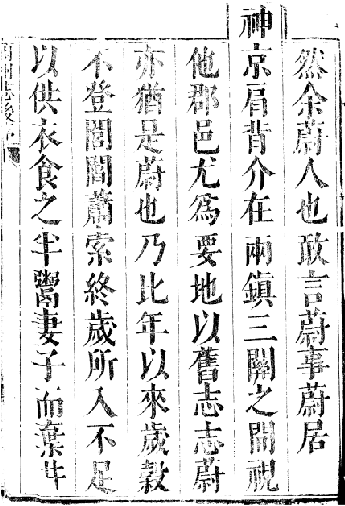 然余蔚人也敢言蔚事蔚居
神京肩背介在兩鎮三關之間視
他郡邑尤爲要地以舊志志蔚
亦猶是蔚也乃比年以來歲穀
不登閭閻蕭索終歲所入不足
以供衣食之半鬻妻子而棄